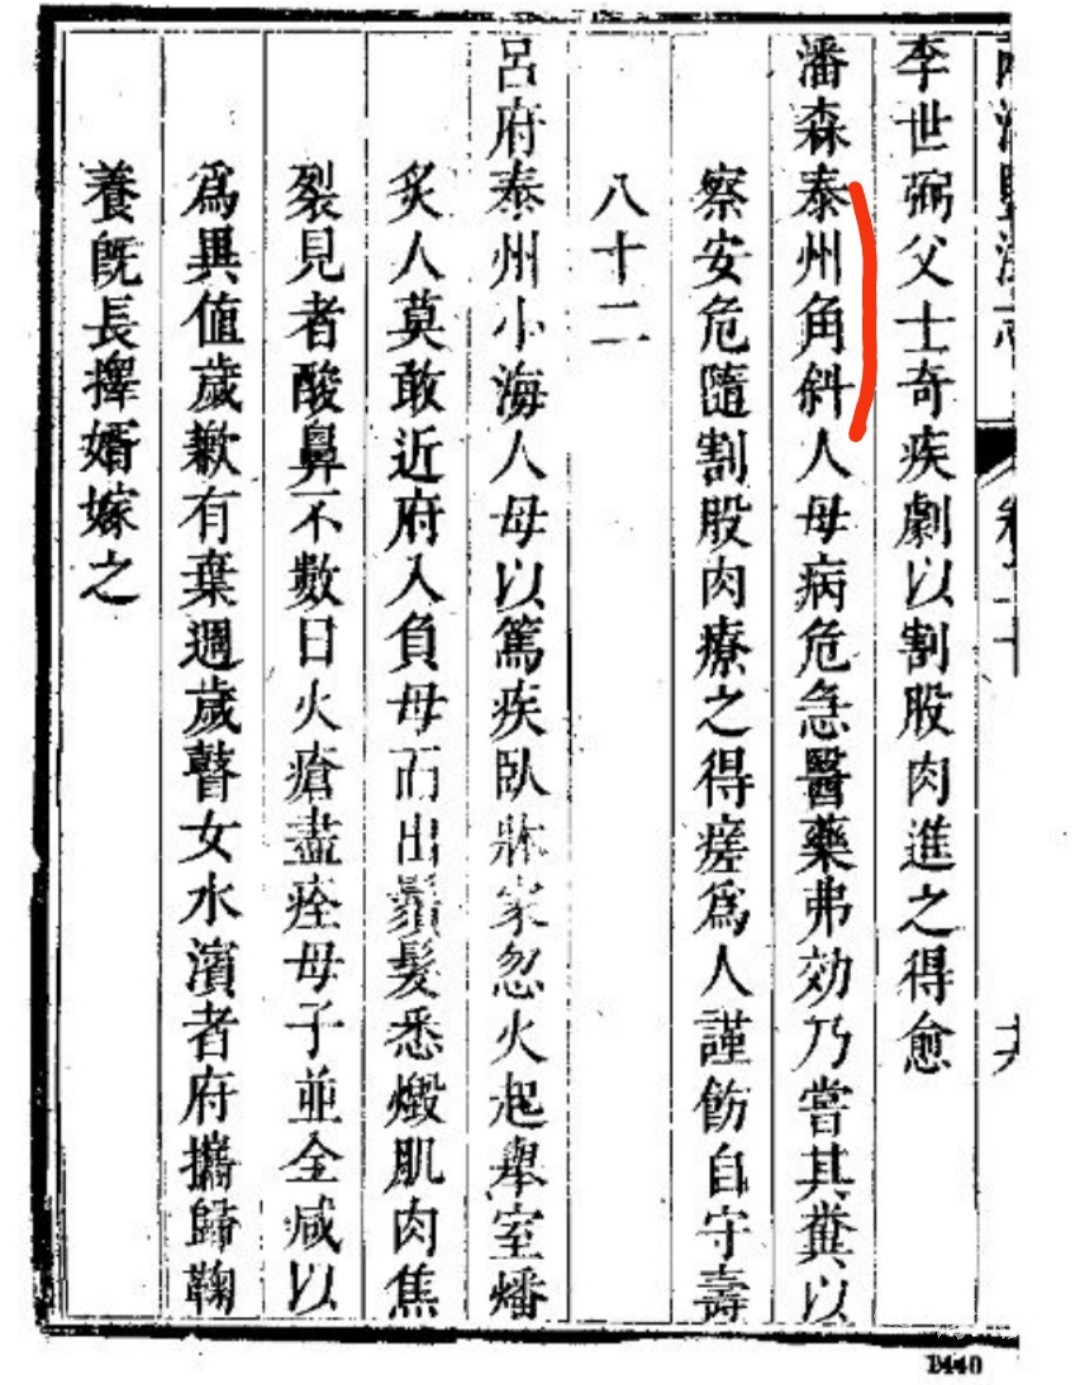 李世弼父士奇疾劇以割股肉進之得愈
潘森泰州角斜人母病危急醫藥弗効乃嘗其糞以
察安危隨割股肉療之得瘥為人謹飭自守壽
八十二
呂府泰州小海人母以篤疾臥牀家忽火起舉室燔
炙人莫敢近府入負母而出鬚髮悉燬肌肉焦
裂見者酸鼻不數日火瘡盡痊母子並全咸以
為異値歲歉有棄週歲瞽女水濱者府攜歸鞠
養旣長擇婿嫁之
B440